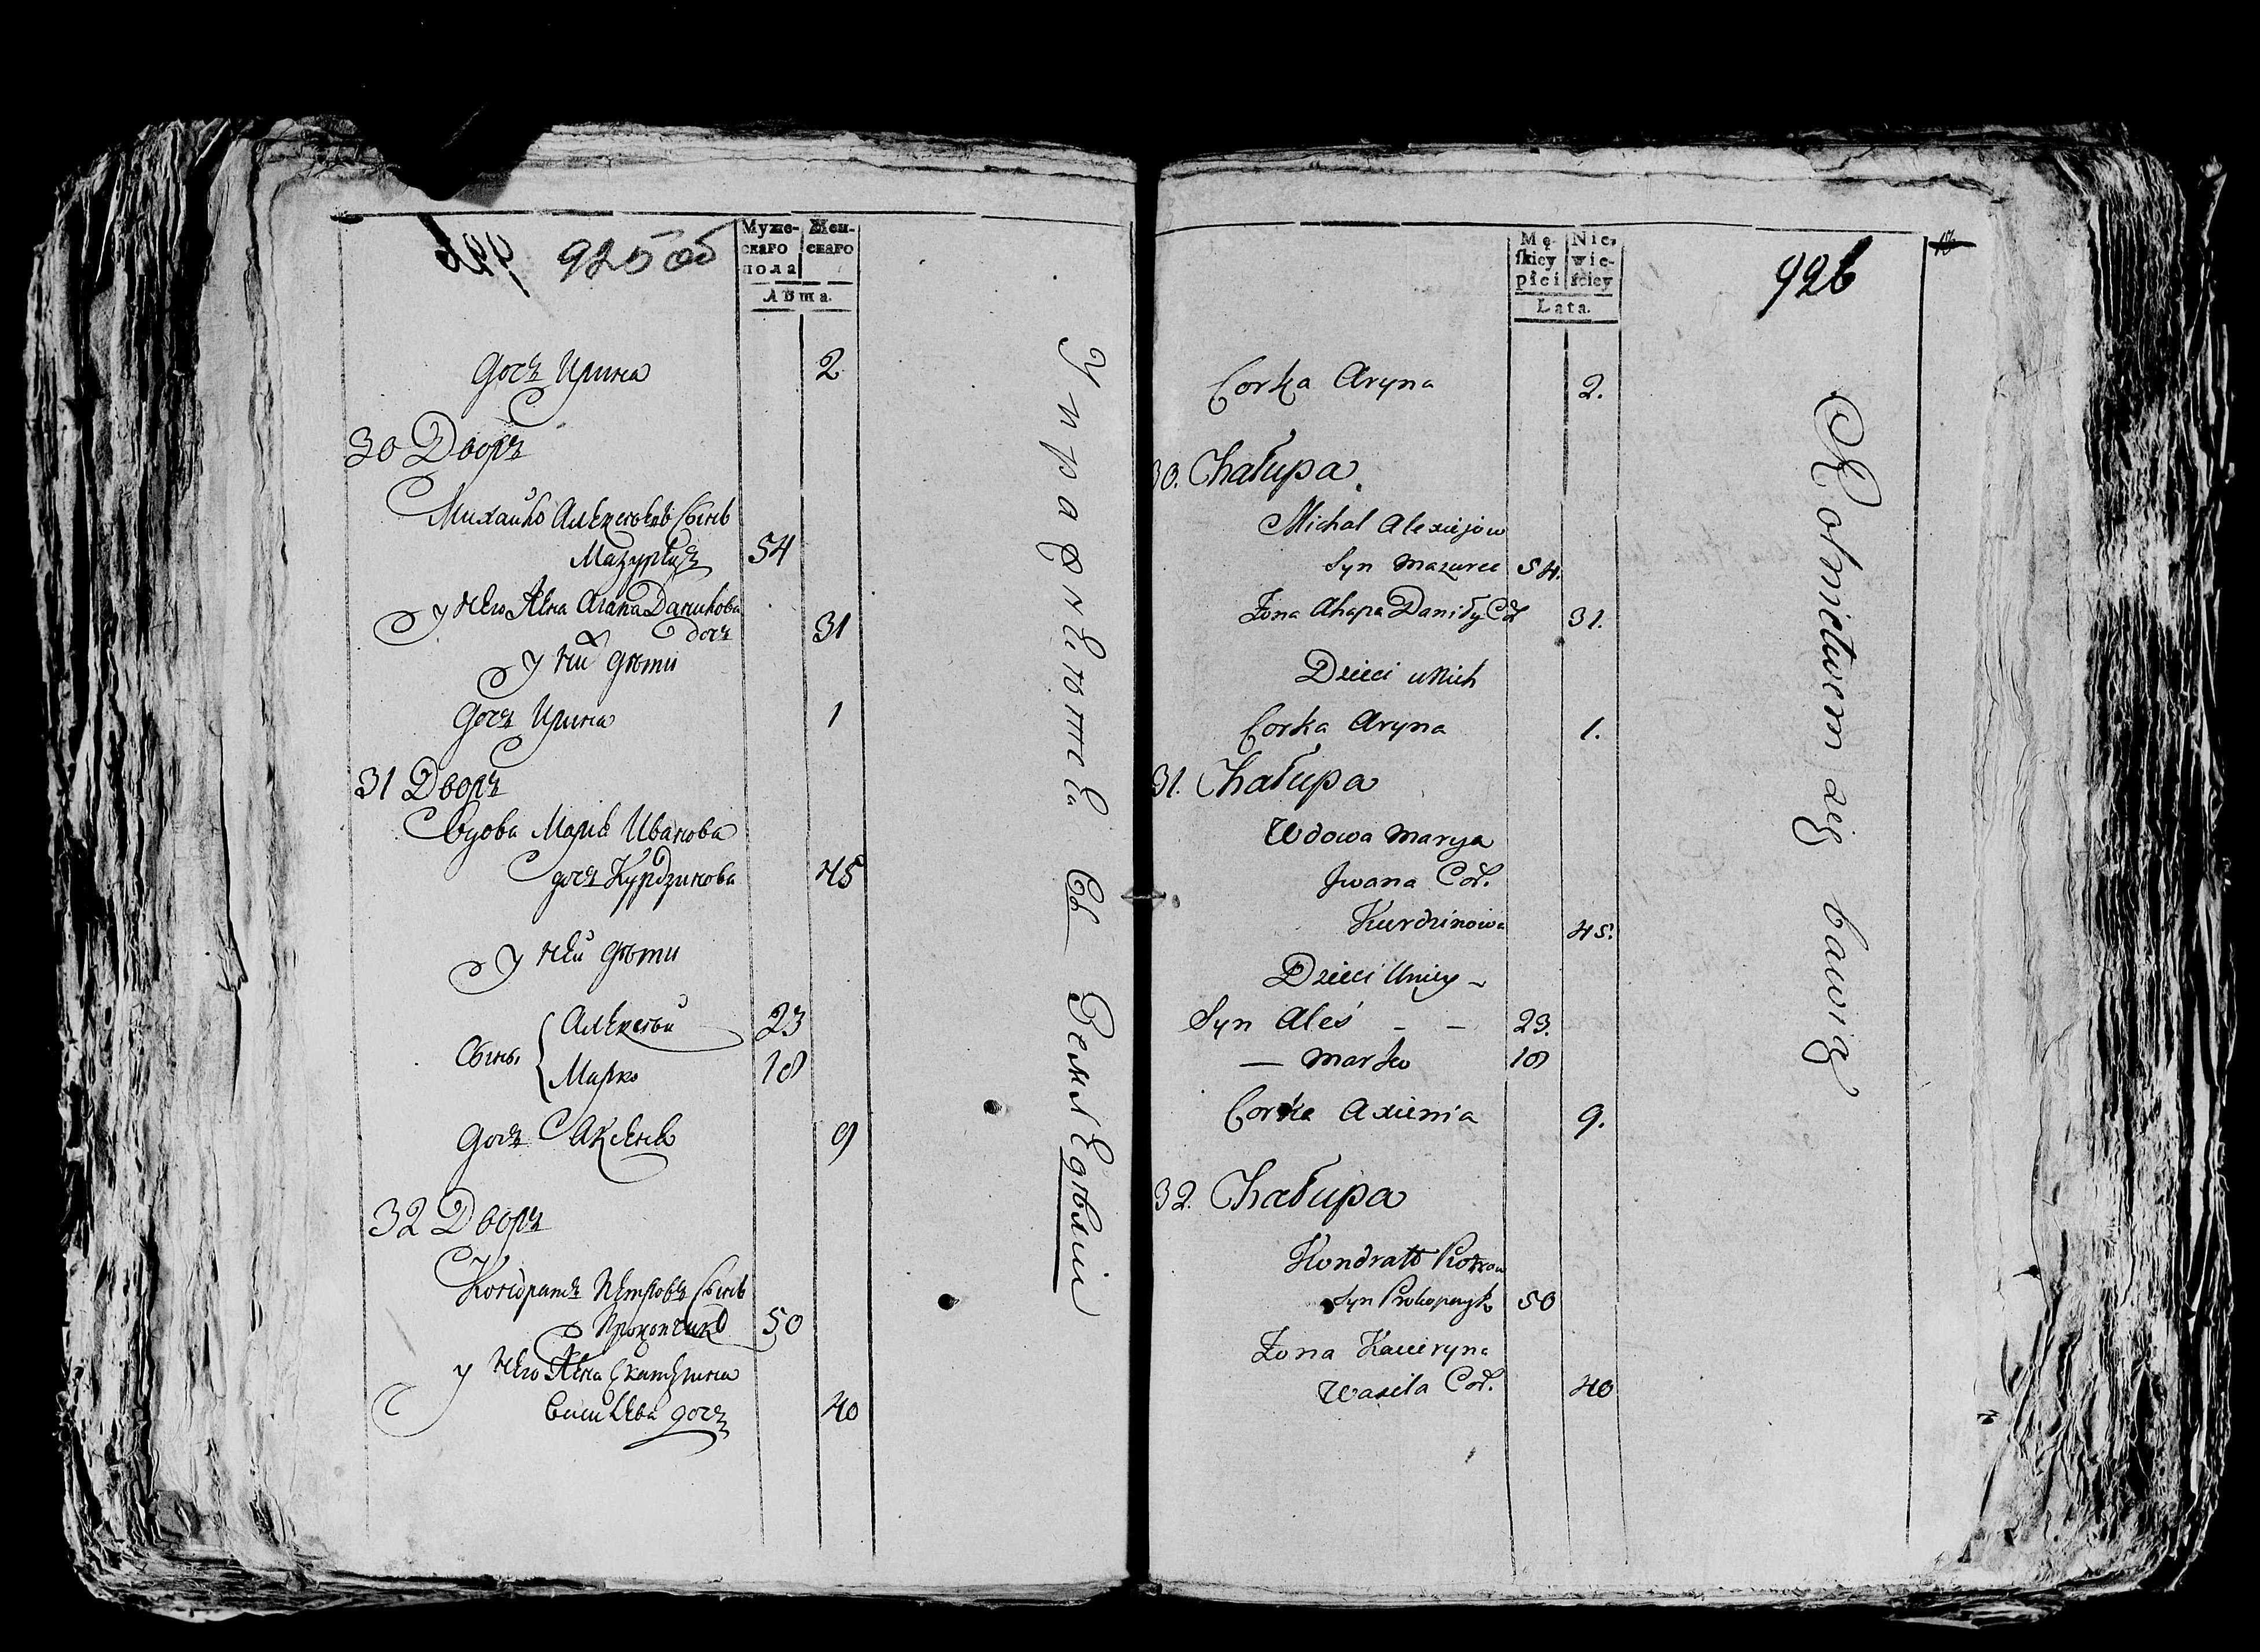 925 об
Муже- Жен-
скаго скаго
пола
Лѣта.
дочъ Ирина 2
30 Дворъ
Михайло Алексѣевъ сынъ
Мазурецъ 54
У него жена Агапа Данилова
дочъ 31
У ни дѣти
дочъ Ирина 1
31 Дворъ
Вдова Марія Иванова
дочъ Курдзинова 45
У ней дѣти
Сыны Алексѣй 23
Марко 18
дочъ Аксенія 9
32 Дворъ
Кондратъ Петровъ сынъ
Прокопчикъ 50
У него жена Екатерина
Васильева дочъ 40
Упражненте въ Земледѣліи
926
Mę- Nie-
skiey wie-
płci ściey
Lata.
Corka Aryna 2.
30. Chałupa
Michał Alexiejow
Syn Mazurec 54.
Żona Ahapa Daniły Cór 31.
Dzieci u Nich
Corka Aryna 1.
31. Chałupa
Wdowa Marya
Jwana Cór.
Kurdzinowa 45.
Dzieci Uniey -
Syn Aleś - - 23.
— Marko 18
Corka Axienia 9.
32. Chałupa
Kondratt Piotrow
Syn Prokopczyk 50
Żona Kacieryna
Wasila Cór. 40
Rolnictwem się bawią